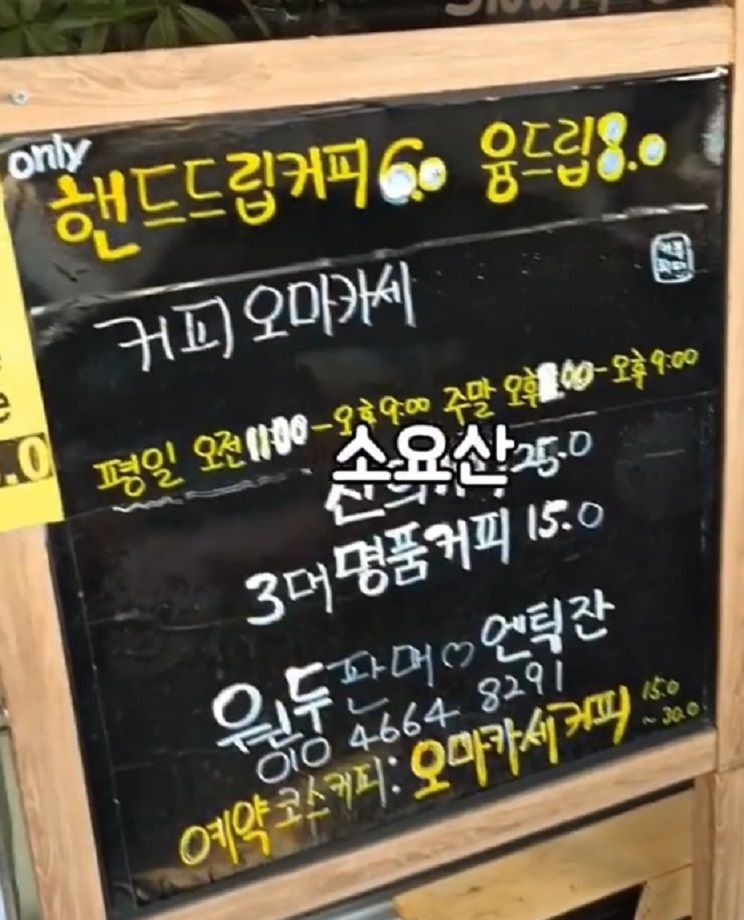 only
핸드드립커피 6.0 융드립 8.0
커피 오마카세
평일 오전 11:00-오후 9:00 주말 오후 :00-오후 9:00
소요산
25.0
3대 명품커피 15.0
원두판매♡엔틱잔
010 4664 8291
예약 코스커피: 오마카세 커피 15.0
~30.0